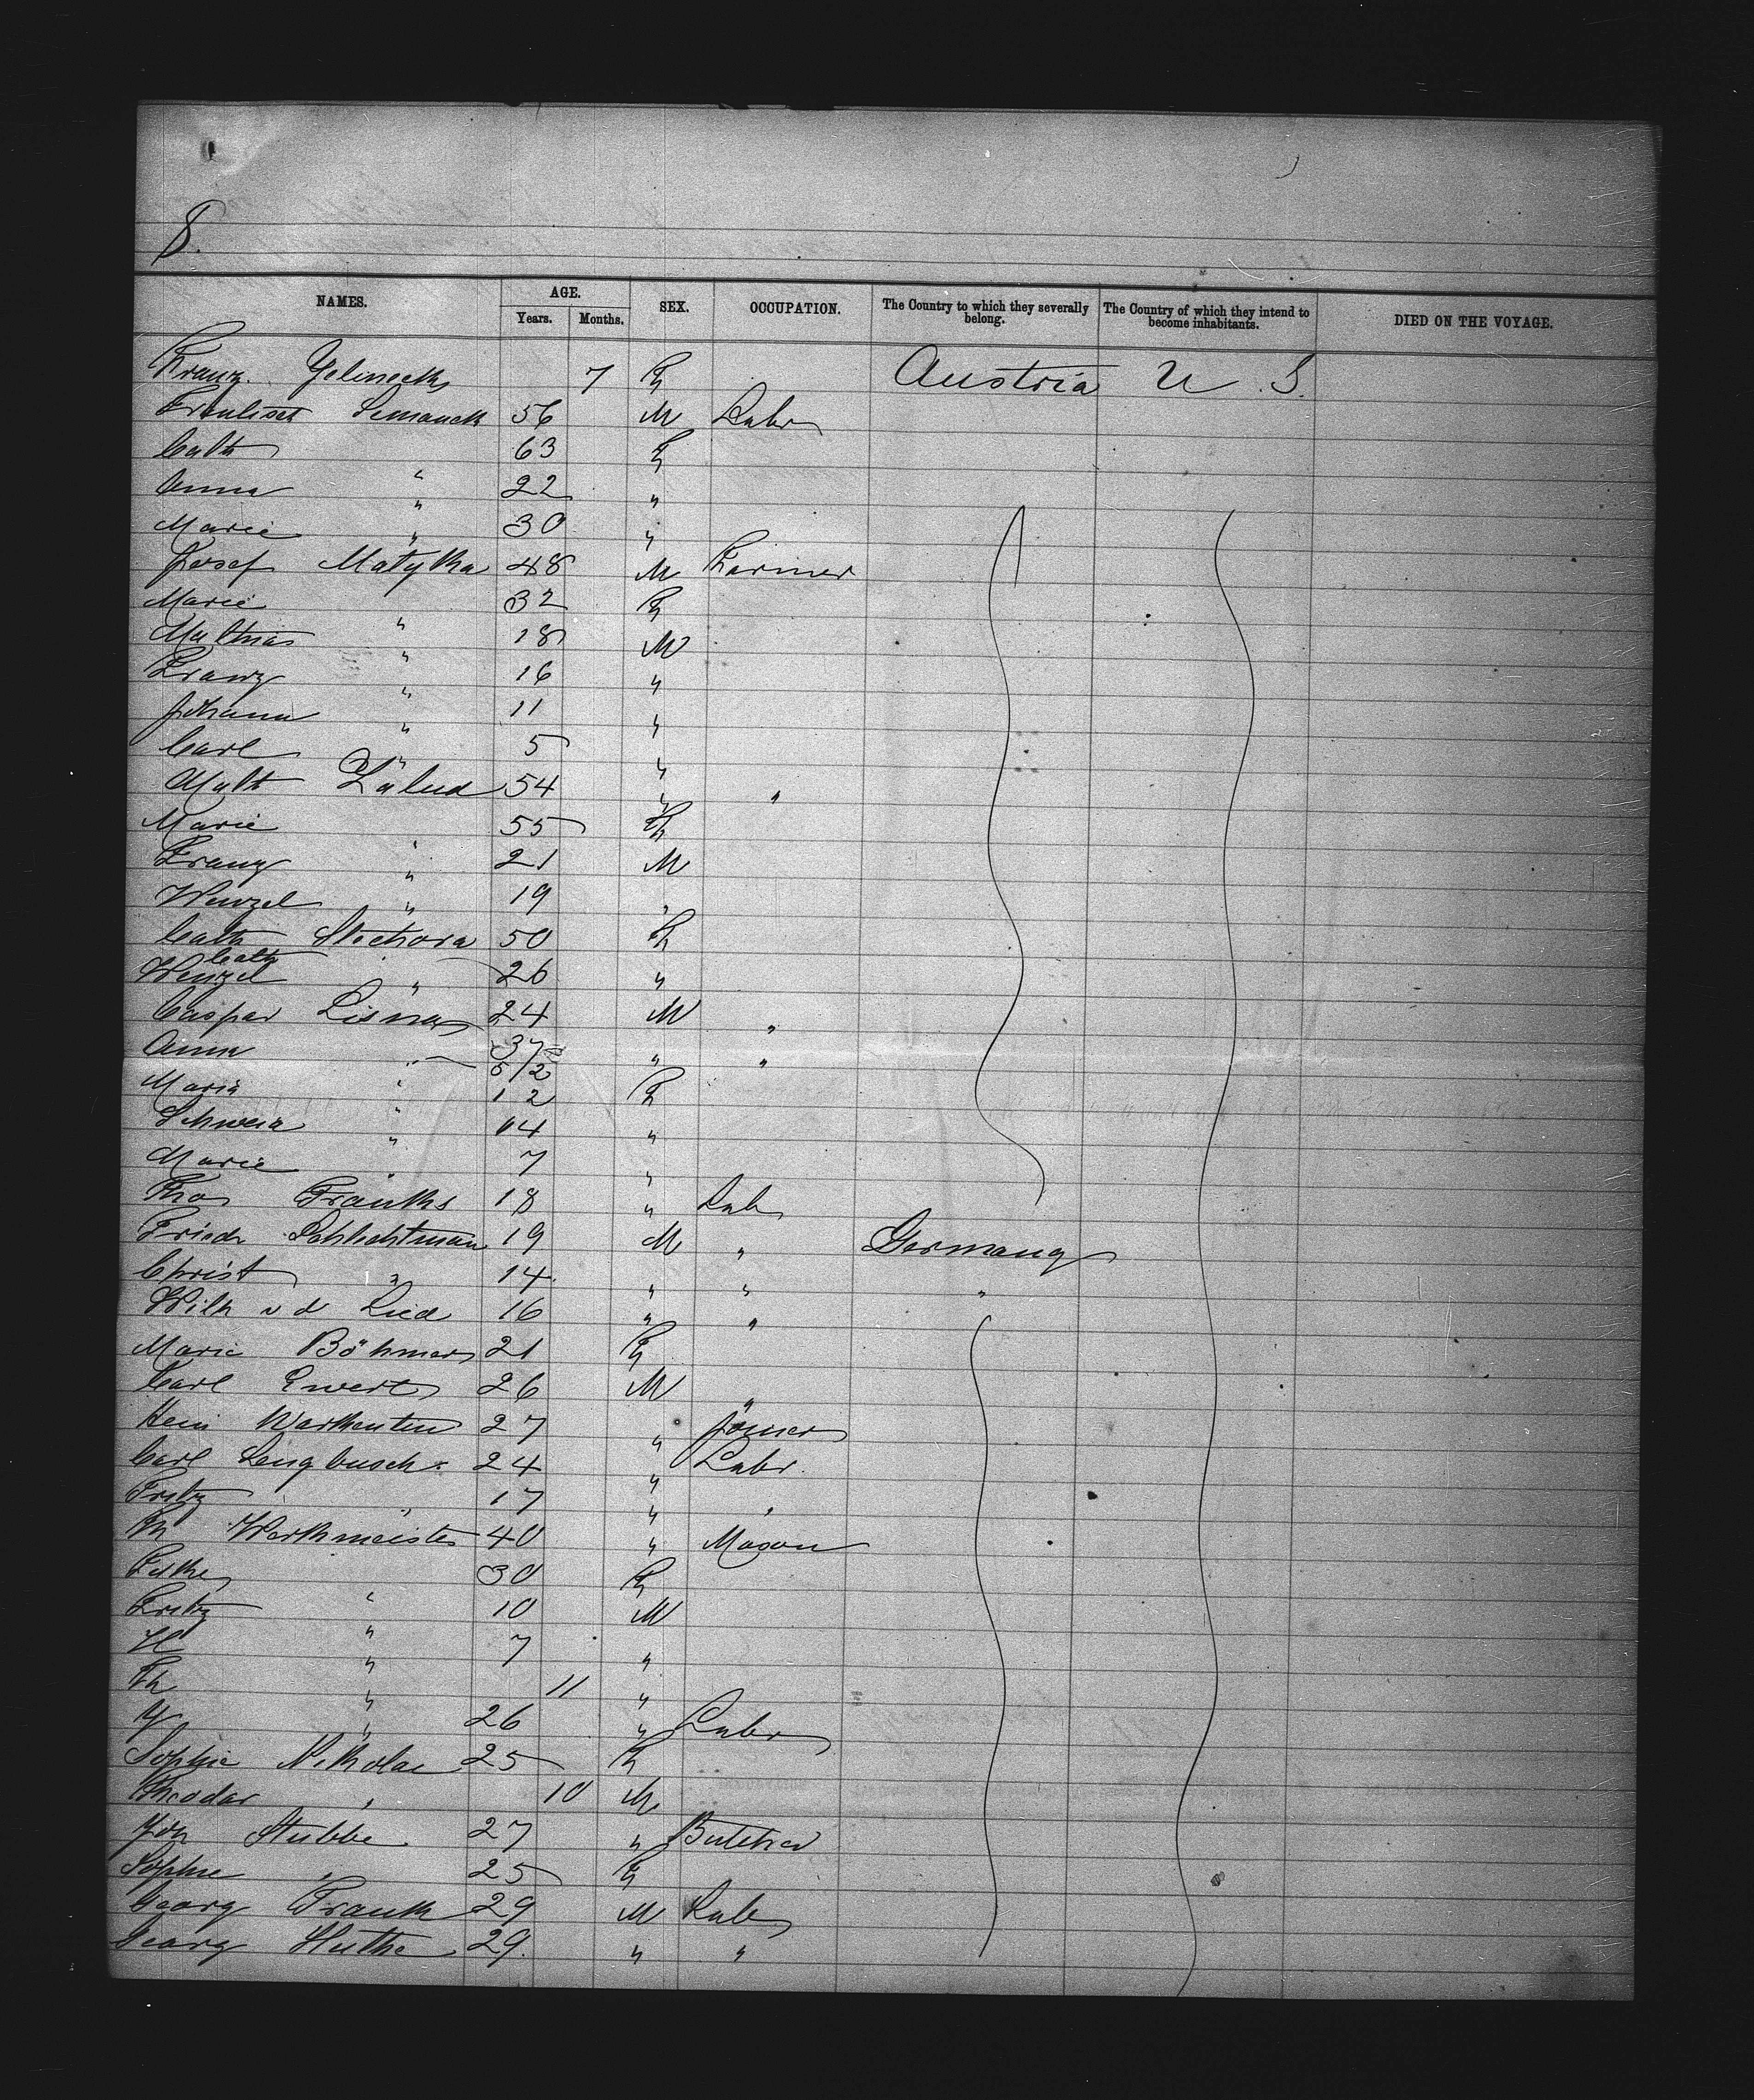 8.
NAMES. AGE. SEX. OCCUPATION. The Country to which they severally belong. The Country of which they intend to become inhabitants. DIED ON THE VOYAGE.
Years. Months.
Franz Yelineck 7 F Austria U. S.
Semaneck 56 M Labr
Cath 63 F
Anna " 22 "
Marie " 30 "
Josef Matyka 48 M Farmer
Marie " 32 F
Mathias " 18 M
Franz " 16 "
Johann " 11 "
Carl " 5 "
Math Zalud 54 " "
Marie " 55 F
Franz " 21 M
Wenzel " 19 "
Cath Stechora 50 F
Cath
Wenzel " 26 "
Caspar 24 M "
Anna " 37 " "
5/2
Maria " 12 F
" 14 "
Marie " 7 "
Franks 18 " Lab
Friedr Schlichtman 19 M " Germany
Christ " 14 " " "
Wilh v d Lied 16 " "
Marie Böhmer 21 F
Carl Ewert 26 M "
Hein Warkentin 27 " Joiner
Carl Lengbusch 24 " Labr.
Fritz " 17 " "
Werkmeister 40 " Mason
" 30 F
Fritz " 10 M
H " 7 "
" 11 "
" 26 " Labr
Sophie Nikolae 25 F
Theodor " 10 M
Joh Stubbe 27 " Butcher
Sophie " 25 F
Georg Frank 29 M Lab
Georg Huthe 29. " "